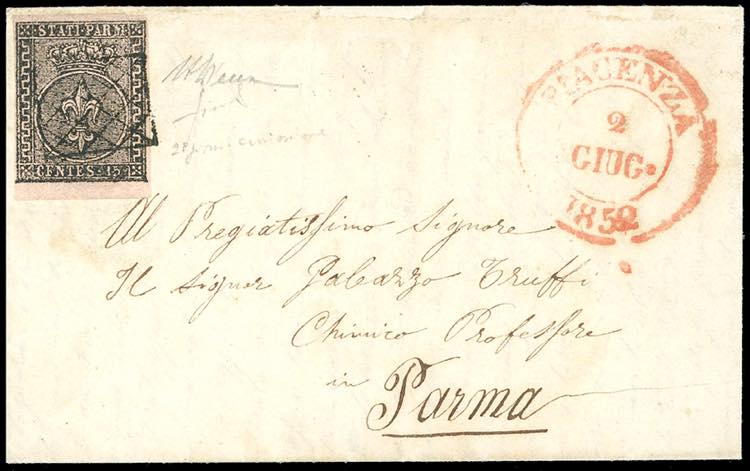 STATI PARM
CENTES. 15
PIACENZA
2
GIUG.
1852
Al Pregiatissimo Signore
Il Signor Galeazzo Truffi
Chimico Professore
in
Parma